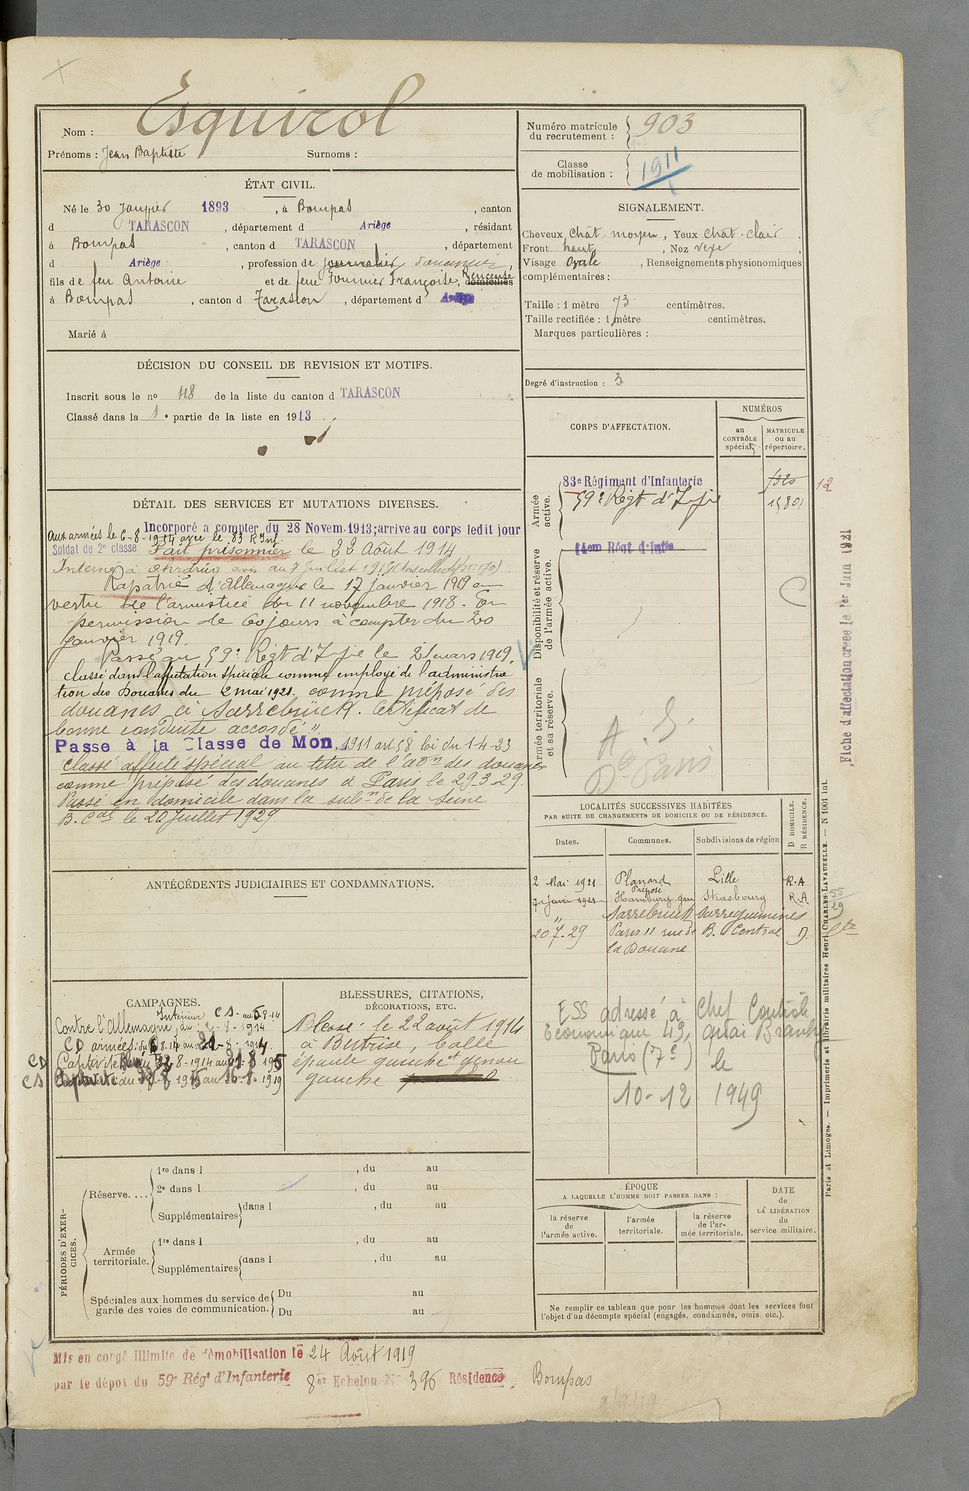 Nom : Esquirol
Prénoms : Jean Baptiste Surnoms :
Numéro matricule du recrutement : 903
Classe de mobilisation : 1911
ÉTAT CIVIL.
Né le 30 Janvier 1893, à Bompas, canton
d TARASCON, département d Ariège, résidant
à Bompas, canton d TARASCON, département
d Ariège, profession de journalier douanier,
fils de feu Antoine et de feue Fournier Françoise, domiciliés
à Bompas, canton d Tarascon, département d Ariège
Marié à
SIGNALEMENT.
Cheveux chât. moyen, Yeux chât. clair,
Front haut, Nez vexe
Visage Ovale, Renseignements physionomiques
complémentaires :
Taille : 1 mètre 73 centimètres.
Taille rectifiée : 1 mètre centimètres.
Marques particulières :
Degré d'instruction : 3
DÉCISION DU CONSEIL DE REVISION ET MOTIFS.
Inscrit sous le nº 48 de la liste du canton d TARASCON
Classé dans la 1e partie de la liste en 1913
CORPS D'AFFECTATION.
NUMÉROS
au CONTRÔLE spécial.
MATRICULE ou au répertoire.
Armée active.
83e Régiment d'Infanterie
12
59e Régt d'Infie
15801
Disponibilité et réserve de l'armée active.
14em Régt d'Infie
Armée territoriale et sa réserve.
A. S.
De Paris
Fiche d'affectation créée le 1er Juin 1921
DÉTAIL DES SERVICES ET MUTATIONS DIVERSES.
Incorporé a compter du 28 Novem. 1913; arrive au corps ledit jour
Aux armées le 6-8-1914 avec le 83 R Inf.
Soldat de 2e classe Fait prisonnier le 22 Août 1914
Interné à
Rapatrié d'Allemagne le 17 janvier 1919 en
vertu de l'armistice du 11 novembre 1918. En
permission de 60 jours à compter du 20
janvier 1919.
Passé au 59e Régt d'Infie le 21 mars 1919.
classé dans l'affectation spéciale comme employé de l'administra
tion des Douanes du 2 mai 1921. comme préposé des
douanes à Sarrebrück. Certificat de
bonne conduite accordé".
Passé à la Classe de Mon. 1911 art 58 loi du 1-4-23
classé affecté spécial au titre de l'aon des douanes
comme préposé des douanes à Paris le 29-3-29.
Passé en domicile dans la subon de la Seine
B. Cal le 20 Juillet 1929
LOCALITÉS SUCCESSIVES HABITÉES
PAR SUITE DE CHANGEMENTS DE DOMICILE OU DE RÉSIDENCE.
Dates. Communes. Subdivisions de région
D DOMICILE. R RÉSIDENCE.
2 Mai 1921 Planard Lille R.A
Préposé
Strasbourg R.A
" Sarrebruck Sarreguemines
20 7.29 Paris 11 rue de B. Central D.
la Douane
ESS adressé à Chef Contrôle
Economique 43, quai Branly
Paris (7e) le
10-12 1949
ANTÉCÉDENTS JUDICIAIRES ET CONDAMNATIONS.
CAMPAGNES.
Intérieur C S.
Contre l'Allemagne, du
CD armées
CD Captivité
CS
BLESSURES, CITATIONS,
DÉCORATIONS, ETC.
Blessé le 22 août 1914
à Bertrix, balle
épaule gauche et genou
gauche
PÉRIODES D'EXERCICES.
Réserve....
1re dans l , du au
2e dans l , du au
Supplémentaires dans l , du au
Armée territoriale.
1re dans l , du au
Supplémentaires dans l , du au
Spéciales aux hommes du service de garde des voies de communication.
Du au
Du au
ÉPOQUE
A LAQUELLE L'HOMME DOIT PASSER DANS :
la réserve de l'armée active.
l'armée territoriale.
la réserve de l'armée territoriale.
DATE de LA LIBÉRATION du service militaire.
Ne remplir ce tableau que pour les hommes dont les services font
l'objet d'un décompte spécial (engagés, condamnés, omis, etc.).
Paris et Limoges. — Imprimerie et librairie militaires Henri CHARLES-LAVAUZELLE. — N 1001 int.
Mis en congé illimité de démobilisation le 24 Août 1919
par le dépôt du 59e Régt d'Infanterie 8er Echelon No 396 Résidence Bompas